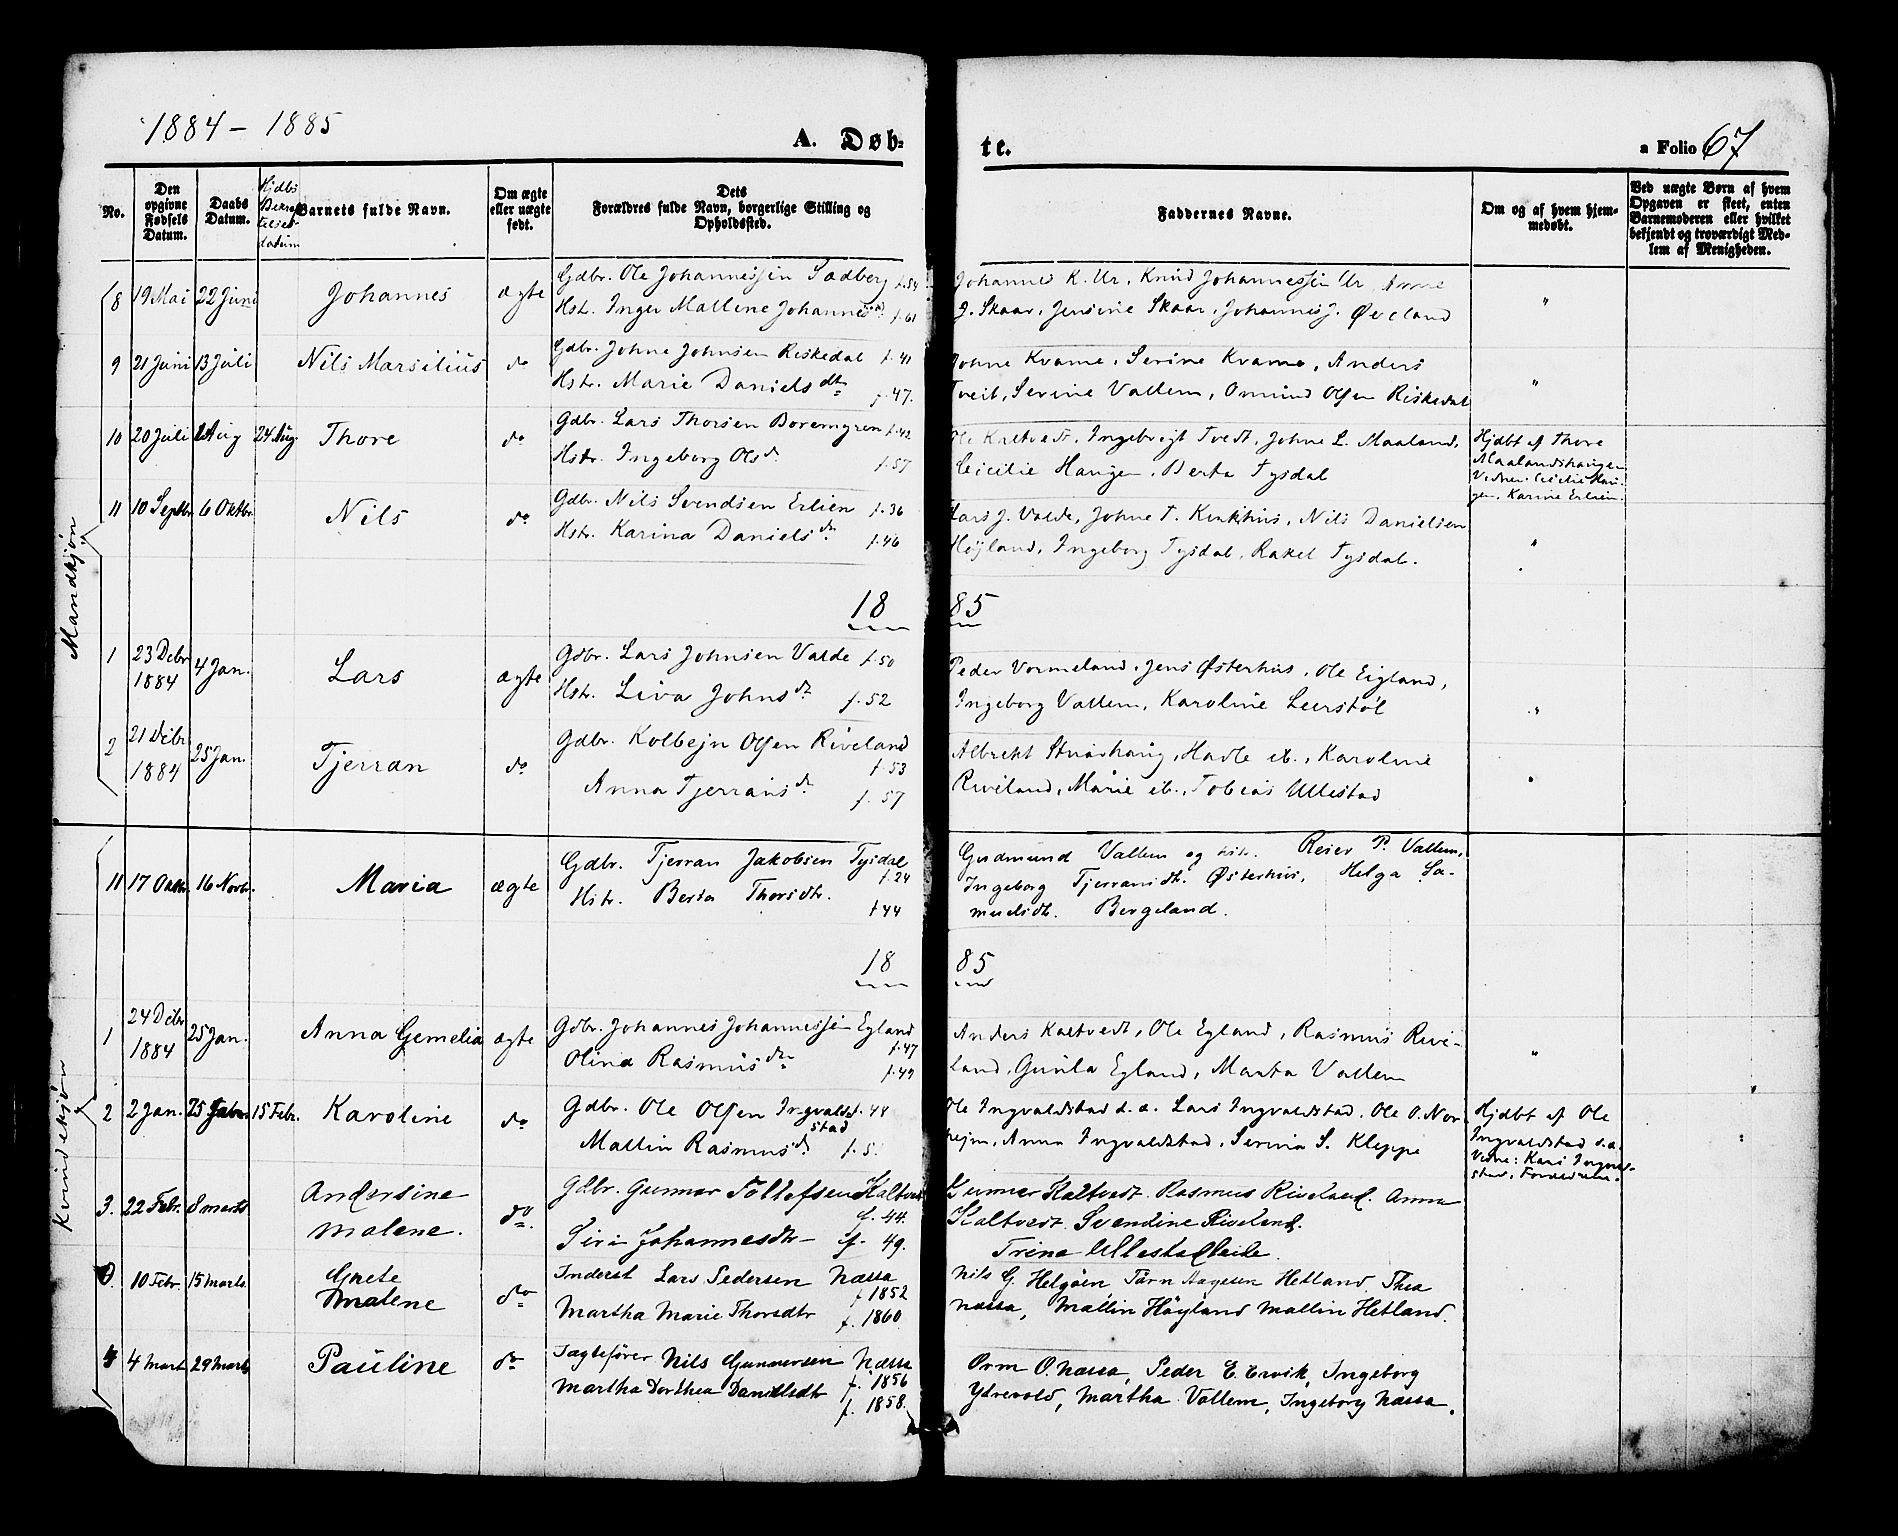 1884 - 1885
A. Døb-
te.
a Folio 67
No.
Den opgivne Fødsels Datum.
Daabs Datum.
Hjdbs
Barnets fulde Navn.
Om ægte eller uægte født.
Dets Forældres fulde Navn, borgerlige Stilling og Opholdssted.
Faddernes Navne.
Om og af hvem hjem-
medøbt.
Ved uægte Børn af hvem
Opgaven er skeet, enten
Barnemoderen eller hvilket
bekjendt og troværdigt Med-
lem af Menigheden.
Mandkjøn
8 19 Mai 22 Juni Johannes ægte Gdbr. Ole Johannessen Sædberg f. 54
Hst. Inger Malline Johannesd. f. 61
Johannes K. Ur, Knud Johannessen Ur, Anne
J. Skaar, Jensine Skaar, Johannes J. Øveland "
9 21 Juni 13 Juli Nils Marsilius do Gdbr. Johne Johnsen Riskedal f. 41
Hstr. Marie Danielsdtr f. 47.
Johne Kvame, Serine Kvame, Anders
Tveit, Serine Vallem, Omund Olsen Riskedal "
10 20 Juli Aug 24 Aug. Thore do Gdbr. Lars Thorsen Boremgren f. 42
Hstr. Ingeborg Olsd. f. 57
Ole Kaltvedt, Ingebrigt Tvedt, Johne L. Maaland,
Cicilie Haugen, Berta Tysdal
Hjdbt af Thore
Maalandshaugen
Vidner: Cicilie Hau-
gen, Karine Erlien.
11 10 Septbr 6 Oktbr. Nils do Gdbr. Nils Svendsen Erlien f. 36
Hstr. Karina Danielsdr. f. 46
Lars J. Valde, Johne T. Kirkhus, Nils Danielsen
Høyland, Ingeborg Tysdal, Rakel Tysdal. "
1885
1 23 Debr 1884 4 Jan. Lars ægte Gdbr. Lars Johnsen Valde f. 50
Hstr. Liva Johnsdr. f. 52
Peder Vormeland, Jens Østerhus, Ole Eigland,
Ingeborg Vallem, Karoline Leirstøl "
2 21 Debr 1884 25 Jan. Tjerran do Gdbr. Kolbejn Olsen Riveland f. 53
Anna Tjerransdr. f. 57
Albrekt Stuashaug, Hadle ib., Karoline
Riveland, Marie ib., Tobias Ullestad "
Kvindekjøn
11 17 Oktbr. 16 Novbr. Maria ægte Gdbr. Tjerran Jakobsen Tysdal f. 24
Hstr. Berta Thorsdtr. f 44
Gudmund Vallem og hstr. Reier P. Vallem,
Ingeborg Tjerransdt. Østerhus, Helga Sa-
muelsdt. Bergeland.
1885
1 24 Debr 1884 25 Jan. Anna Gemelia ægte Gdbr. Johannes Johannessen Egland f. 47
Olina Rasmusdtr. f. 49
Anders Kaltvedt, Ole Egland, Rasmus Rive-
land, Gunla Egland, Marta Vallem "
2 2 Jan. 25 15 Febr. Karoline do Gdbr. Ole Olsen Ingvald- f. 48
stad
Mallin Rasmusd. f. 5
Ole Ingvaldstad d. æ. Lars Ingvaldstad, Ole O. Nor-
hejm, Anna Ingvaldstad, Serina S. Kleppe
Hjdbt af Ole
Ingvaldstad d. æ.
Vidne: Kari Ingvald-
stad, Forældrene.
3. 22 Febr. 8 marts Andersine
malene. do. Gdbr. Gunnar Tollefsen Kaltvedt f. 44.
Siri Johannesdtr f. 49.
Gunnar Kaltvedt. Rasmus Riveland. Anna
Kaltvedt. Svendine Riveland.
Trina Ullestadleite.
10 Febr. 15 marts Grete
malene do Inderst Lars Pedersen Næssa f 1852
Martha Marie Thorsdtr f. 1860
Nils G. Helgøen Tårn Aagesen Hetland. Thea
Næssa, Mallin Höyland Mallin Hetland.
4 mart 29 marts Pauline do Jægtefører Nils Gunnersen Næssa f. 1856
Martha Dorthea Danielsdtr f. 1858.
Orm O. Næssa, Peder E. Ervik, Ingeborg
Ydrevold, Martha Vallem, Ingeborg Næssa.